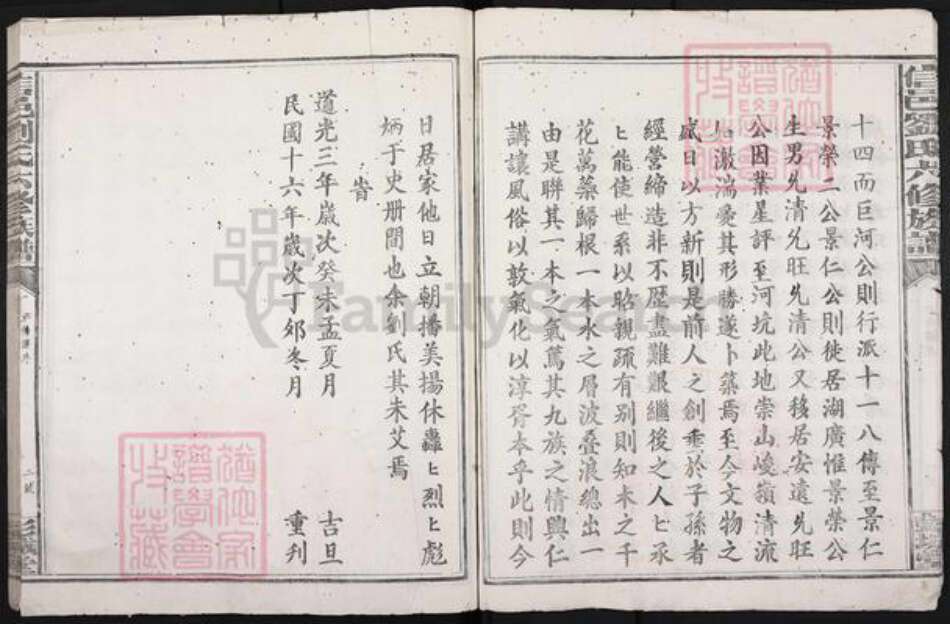 信邑劉氏六修族譜
十四而巨河公則行派十一八傳至景仁
景榮二公景仁公則徙居湖廣惟景榮公
生男允清允旺允清公又移居安遠允旺
公因業星評至河坑此地崇山峻嶺清流
激湍愛其形勝遂卜築焉至今文物之
盛日以方新則是前人之創垂於子孫者
經營締造非不歷盡難艱繼後之人匕承
匕能使世系以昭親疏有别則知木之千
花萬蘂歸根一本水之層波叠浪總出一
由是聯其一本之氣篤其九族之情興仁
講讓風俗以敦氣化以淳胥本乎此則今
日居家他日立朝播美揚休轟匕烈匕彪
炳于史册間也余劉氏其未艾焉
旹
道光三年歲次癸未孟夏月 吉旦
民國十六年歲次丁郊冬月 重刋
信邑劉氏六修族譜
二號
猶他家譜學會收藏
猶他家譜學會收藏
FamilySearch